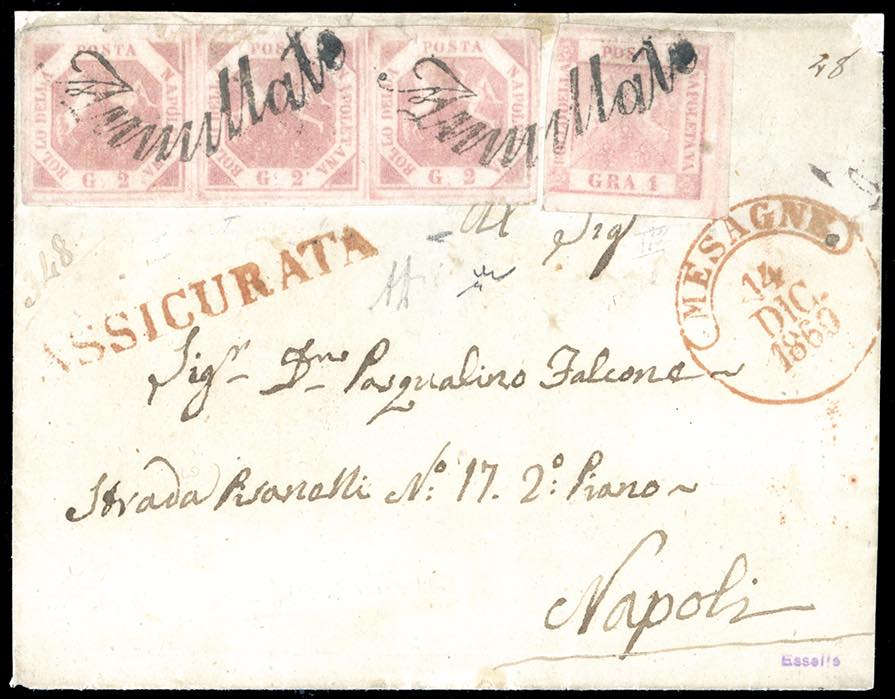 POSTA POSTA POSTA POSTA
BOLLO DELLA NAPOLETANA BOLLO DELLA NAPOLETANA BOLLO DELLA NAPOLETANA BOLLO DELLA NAPOLETANA
G. 2 G. 2 G. 2 GRA 1
Annullato Annullato
48
348
ASSICURATA
Al Sig
MESAGNE.
14
DIC.
1860
Sigr. Dn. Pasqualino Falcone
Strada Pisanelli No: 17. 2o: Piano
Napoli